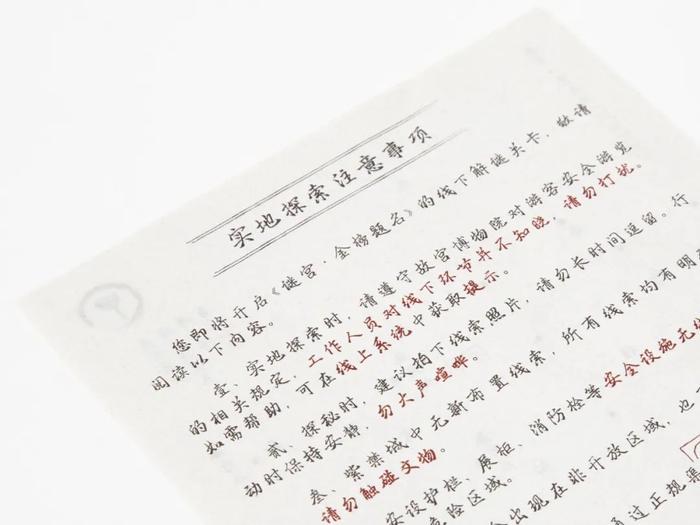 实地探索注意事项
您即将开启《谜宫·金榜题名》的线下解谜关卡,敬请
阅读以下内容。
壹、实地探索时,请遵守故宫博物院对游客安全游览
的相关规定,工作人员对线下环节并不知晓,请勿打扰。
如需帮助,可在线上系统中获取提示。
贰、探秘时,建议拍下线索照片,请勿长时间逗留。行
动时保持安静,勿大声喧哗。
叁、紫禁城中无新布置线索,所有线索均有明
请勿触碰文物。
安设护栏、展柜、消防栓等安全设施无
危险区域。
出现在非开放区域,也
通过正规渠